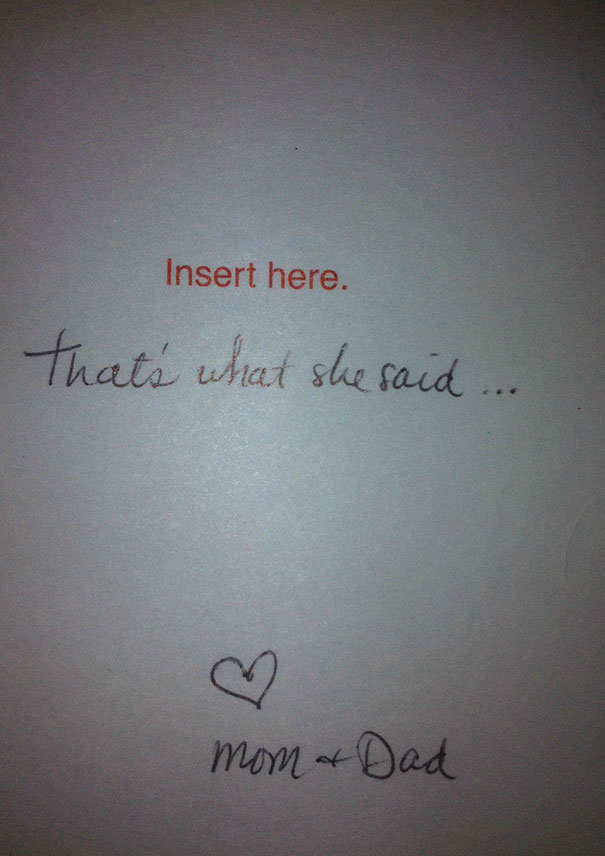 Insert here.
That's what she said...
♡
Mom + Dad